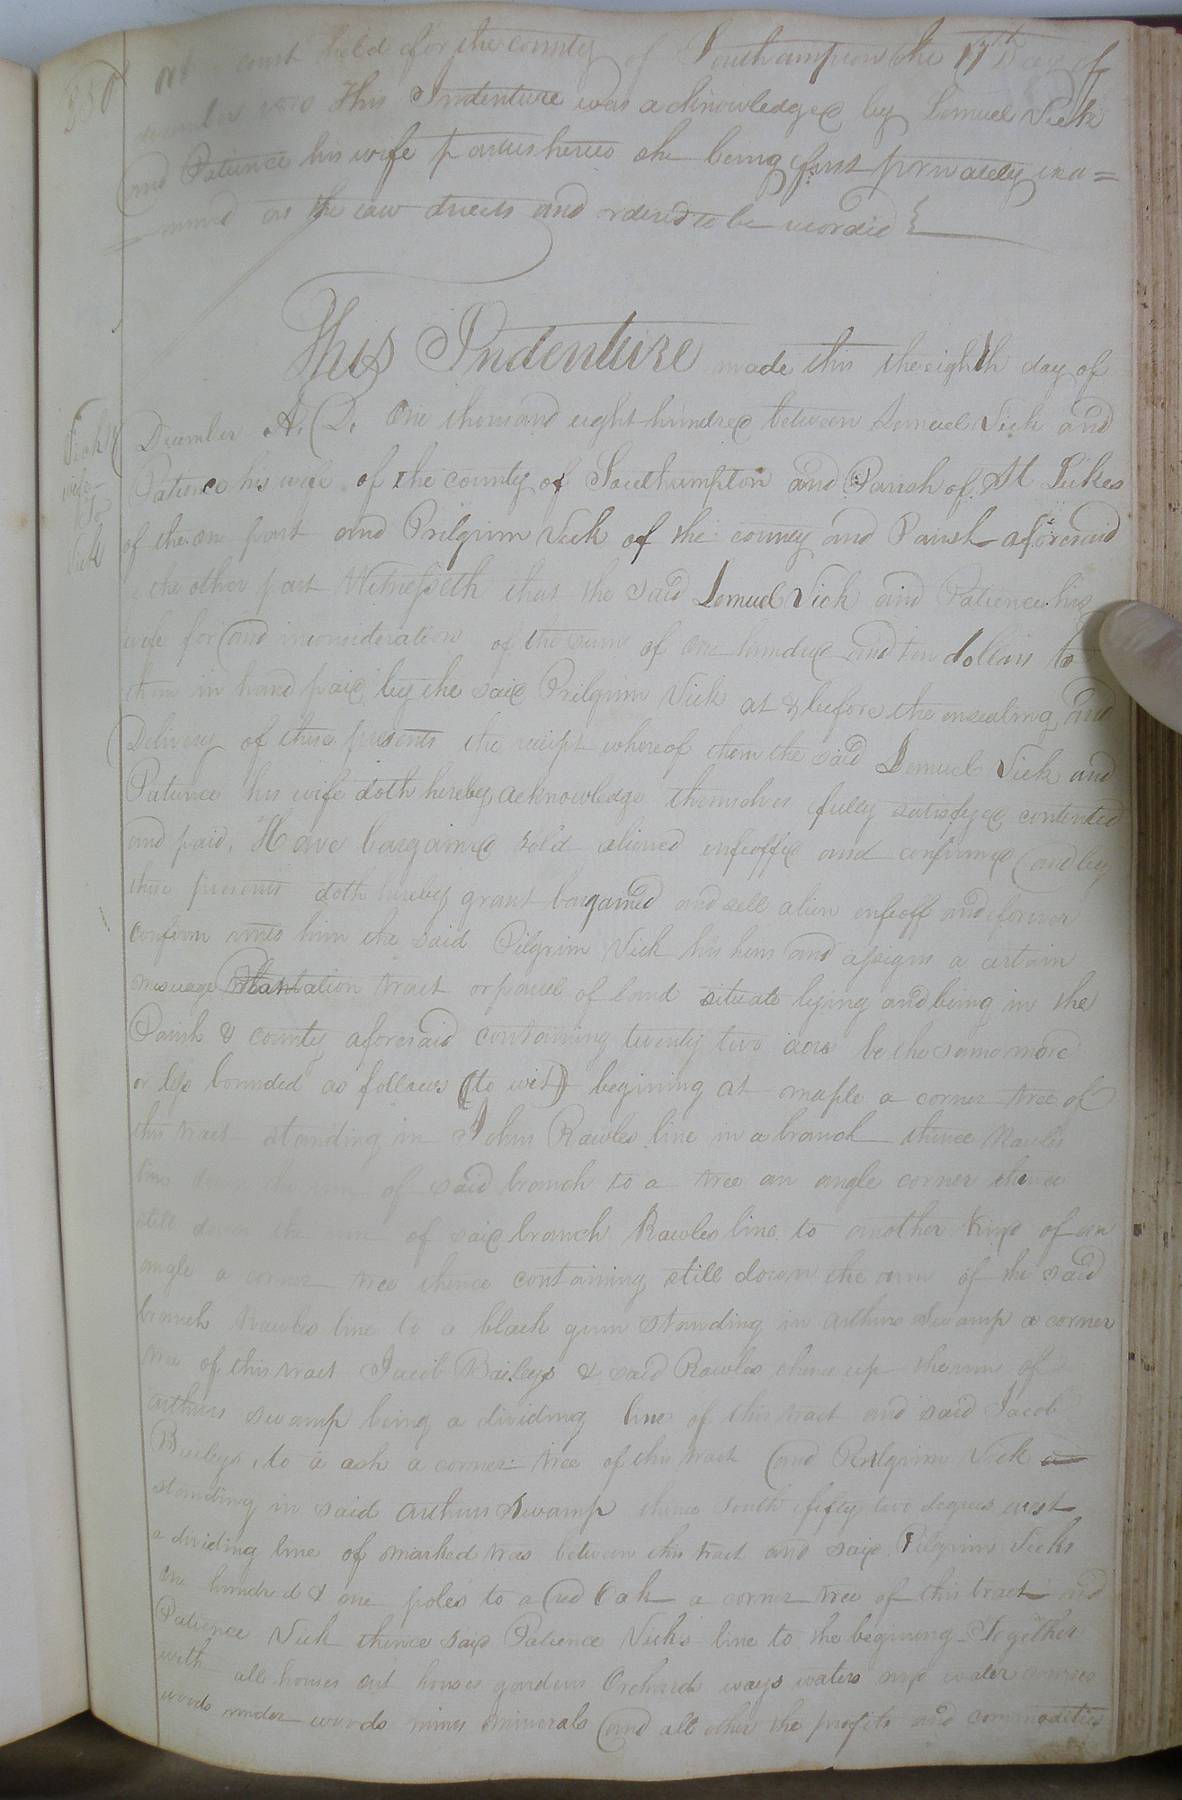 350
At court held for the county of Southampton the 17th Day of
december 1810 This Indenture was acknowledged by Lemuel Vick
and Patience his wife parties hereto she being first privately exa=
mined as the law directs and ordered to be recorded
This Indenture made this the eighth day of
December A. D. One thousand eight hundred between Lemuel Vick and
Patience his wife of the county of Southampton and Parish of St Lukes
of the on part and Prilgrim Vick of the county and Parish aforesaid
the other part Witnesseth that the said Lemuel Vick and Patience his
wife for and inconsideration of the sum of one hundred and ten dollars to
them in hand paid by the said Prilgrim Vick at & before the ensealing and
Delivery of these presents the receipt whereof them the said Lemuel Vick and
Patience his wife doth hereby acknowledge themselves fully satisfyed contented
and paid, Have bargained sold aliened enfeoffed and confirmed and by
these presents doth hereby grant bargained and sell alien enfeoff and forever
confirm unto him the said Pilgrim Vick his heirs and assigns a certain
mesuage Plantation tract or parcel of land situate lying and being in the
Parish & county aforesaid containing twenty two acres be the same more
or less bounded as follows (to wit) begining at maple a corner tree of
this tract standing in John Rawles line in a branch thence Rawles
line down the run of said branch to a tree an angle corner thence
still down the run of said branch Rawles line to another of an
angle a corner tree thence containing still down the run of the said
branch Rawles line to a black gum standing in arthurs Swamp a corner
tree of this tract Jacob Baileys & said Rawles thence up the run of
arthurs swamp being a dividing line of this tract and said Jacob
Baileys, to a ash a corner tree of this tract and Prilgrim Vick
standing in said arthurs Swamp thence South fifty two degrees west
a dividing line of marked trees between this tract and said Pilgrim Vicks
one hundred & one poles to a red Oak a corner tree of this tract and
Patience Vick thence said Patience Vick's line to the begining Together
with all houses out houses gardens Orchards ways waters and water courses
woods under woods mines minerals and all other the profits and commodities
Vick &
wife
To
Vick